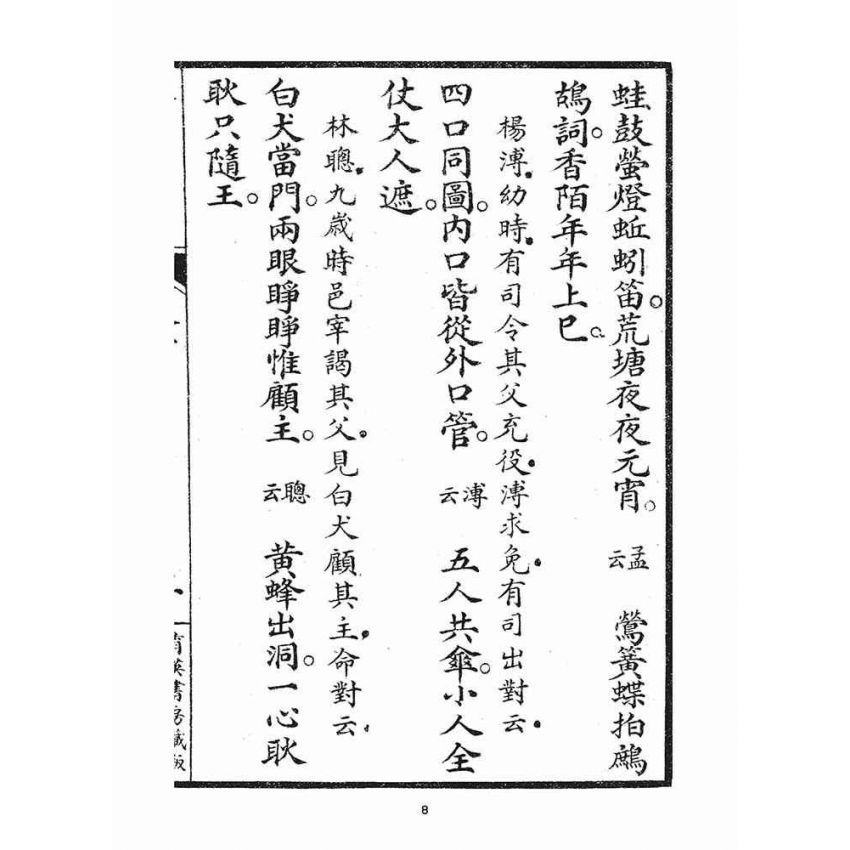 蛙鼓螢燈蚯蚓笛。荒塘夜夜元宵。孟云 鶯簧蝶拍鷓
鴣詞。香陌年年上巳。
楊溥。幼時。有司令其父充役。溥求免。有司出對云。
四口同圖。內口皆從外口管。溥云 五人共傘。小人全
仗大人遮。
林聰。九歲時邑宰謁其父。見白犬顧其主。命對云。
白犬當門。兩眼睜睜惟顧主。聰云 黃蜂出洞。一心耿
耿只隨王。
育英書房藏板
8